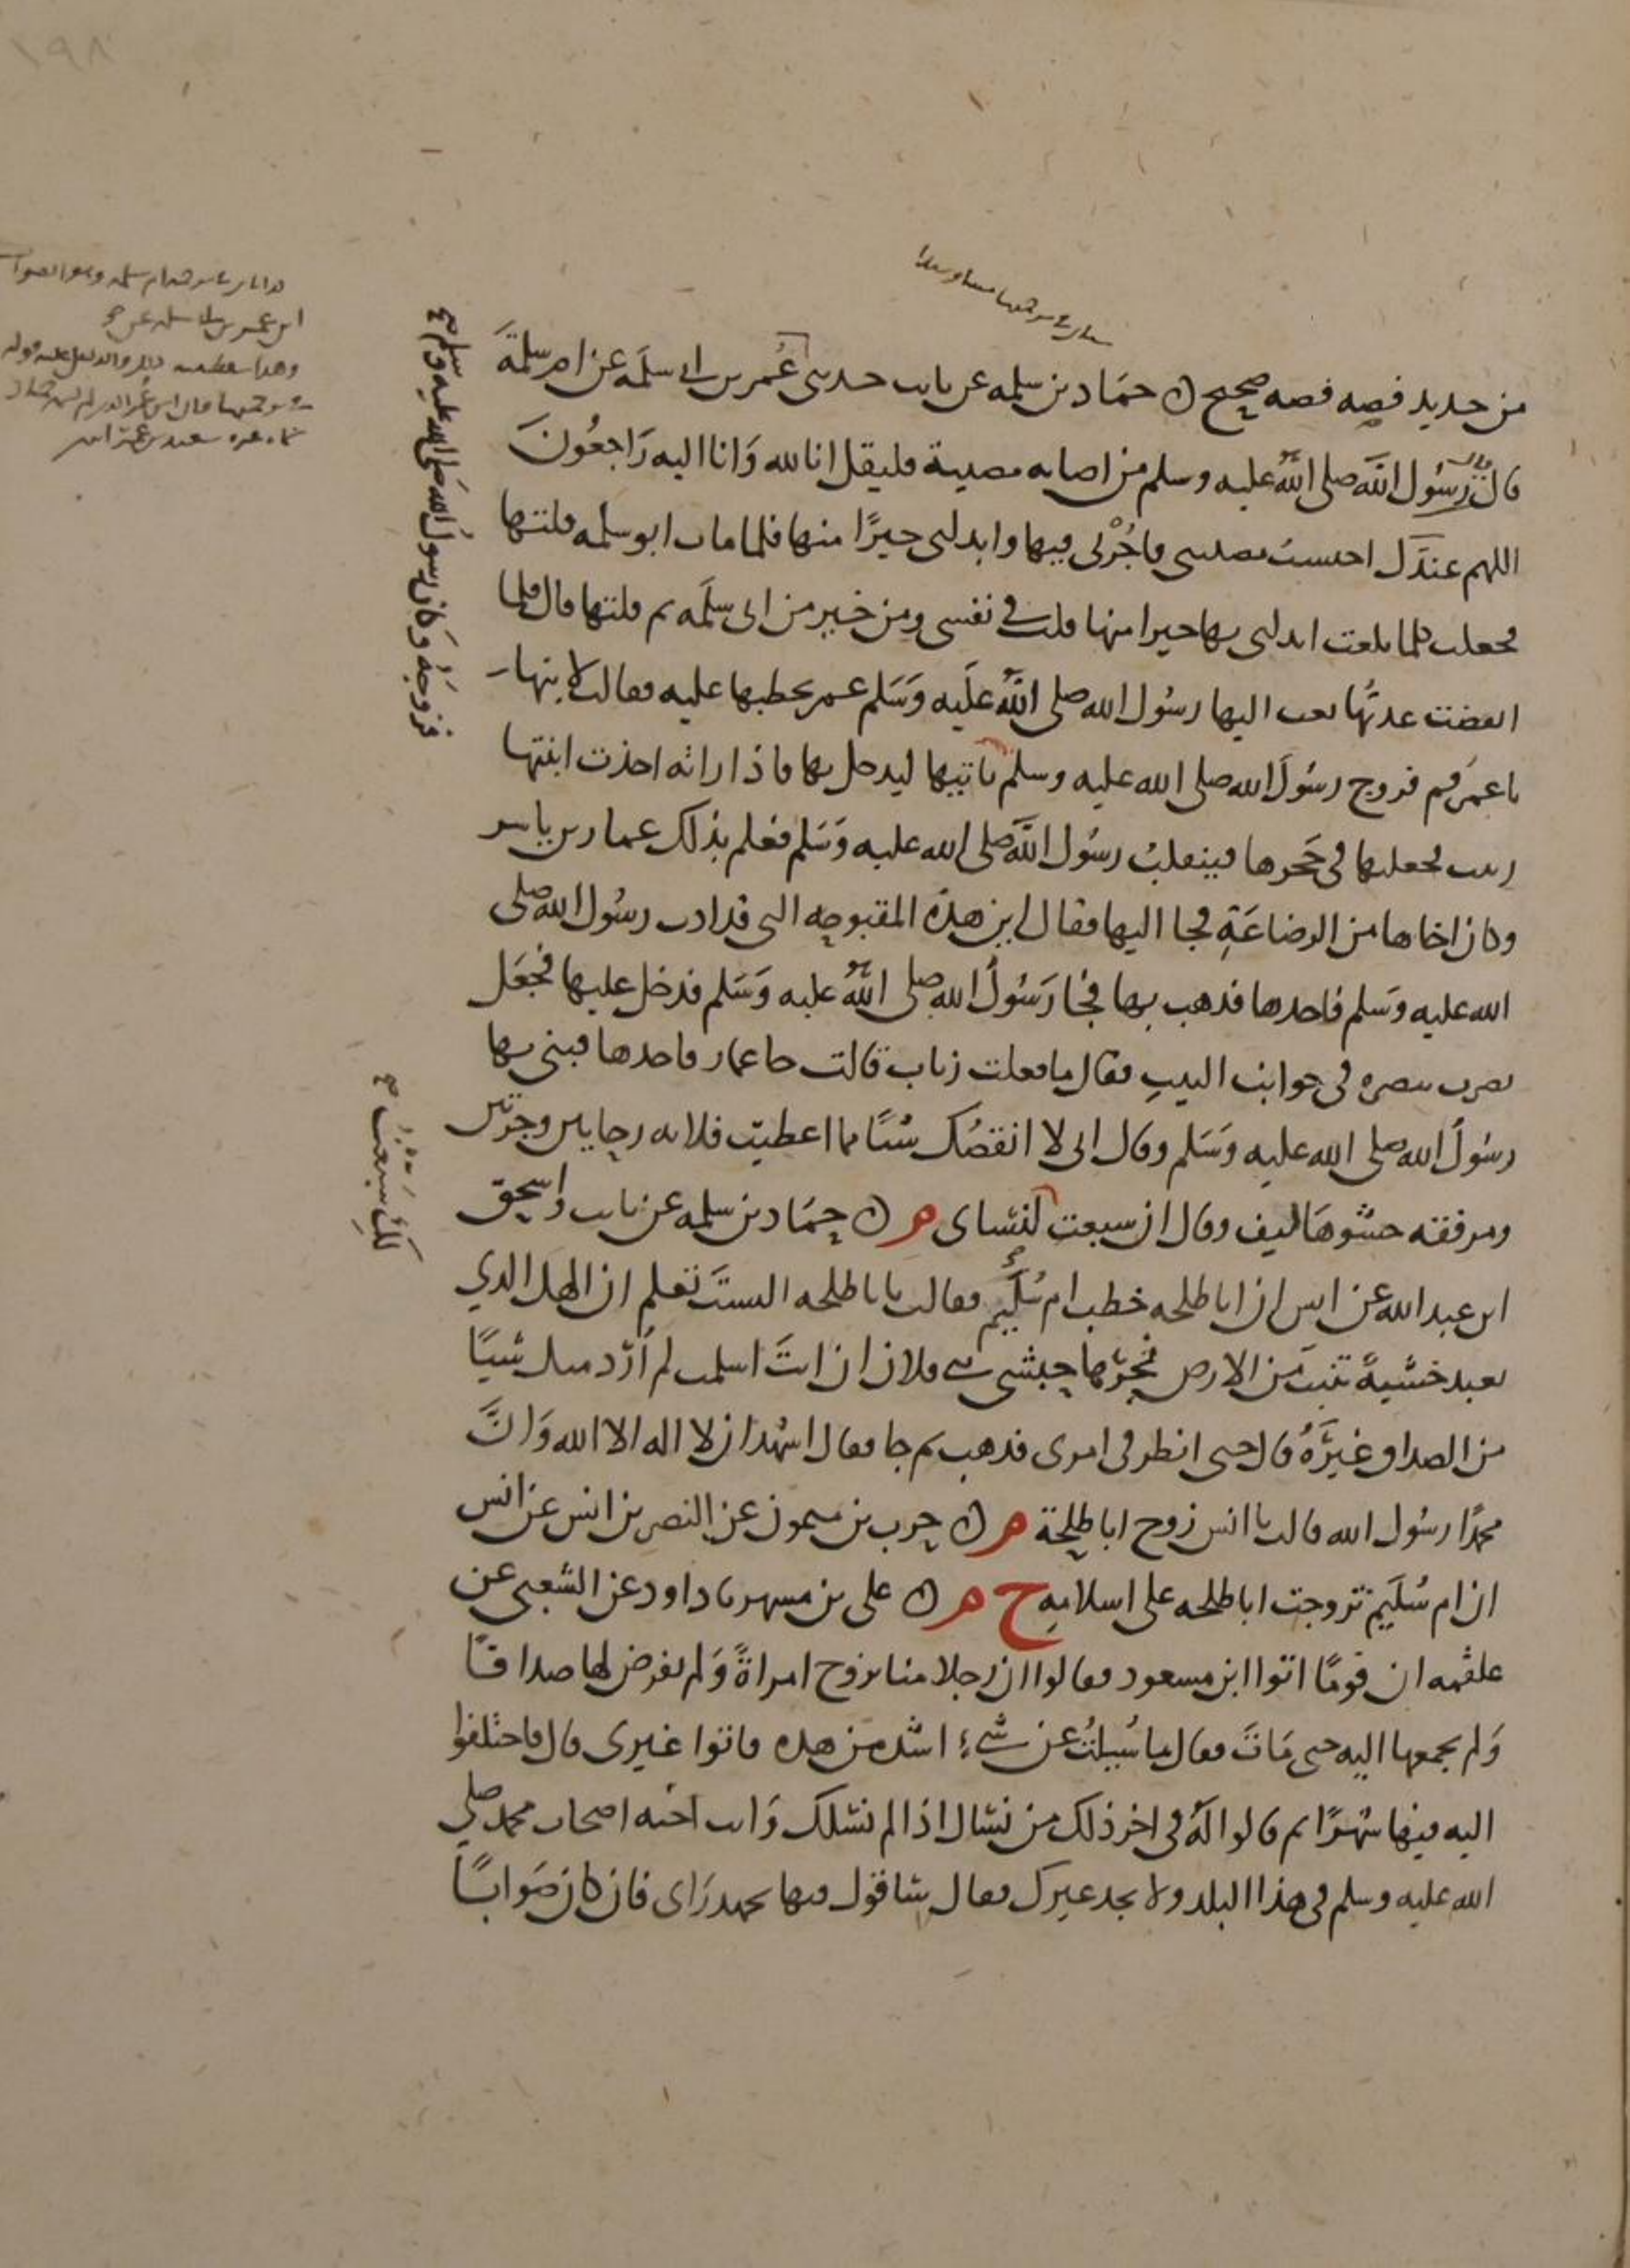 ١٩٨
من حديد فصه فصه صحيح ن حماد بن سلمه عن ثابت حدثني عُمر بن ابي سلَمه عن ام سلمةَ
قال رسُول الله صلى الله عليه وسلم من اصابه مصيبة فليقل انا لله وَانا اليه رَاجعُونَ
اللهم عندَك احتسبتُ مصيبتي فاجُرْني فيها وابدلني خيرًا منها فلما مات ابو سلمه قلتها
فجعلت كلما بلغت ابدلني بها خيرا منها قلت في نفسي ومن خير من ابي سلَمه ثم قلتها قال فلما
انقضت عدتُها بعث اليها رسُول الله صلى اللهُ علَيه وَسَلم عمر يخطبها عليه فقالت لابنها
يا عمَر قم فزوج رسُولَ الله صلى الله عليه وسلم ياتيها ليدخل بها فاذا راته اخذت ابنتها
زينب فجعلتها في حَجرها فينقلبُ رسُول الله صلى الله عليه وَسَلم فعلم بذلك عمار بن ياسر
وكان اخاها من الرضاعَةِ فجا اليها فقال اين هذه المقبوحه التي قد اذت رسُول الله صلى
الله عليه وسَلم فاخدها فدهب بها فجا رَسُولُ الله صلى اللهُ عليه وَسَلم فدخل عليها فجعَل
يضرب ببصره في جوانب البيتِ فقال ما فعلت زناب قالت جا عمار فاخدها فبنى بها
رسُولُ الله صلى الله عليه وَسَلم وقال اني لا انقصُك شيًا مما اعطيت فلانه رحايين وجرتين
ومرفقه حشوهَا ليف وقال ان سبعت لنساي م ن حمَاد بن سلمه عن ثابت واسحق
ابن عبد الله عن انس ان ابا طلحه خطب ام سُلَيم فقالت يا با طلحه الستَ تعلم ان الهك الدي
تعبد خشبةً تنبت من الارض نجرَها حبشي بني فلان ان انتَ اسلمت لم اُرد منك شيًا
من الصداق غيرَهُ قال حتى انظر في امري فدهب ثم جا فقال اشهد ان لا اله الا الله وَانَّ
محمدًا رسُول الله قالت يا انس زوح ابا طلحة م ن حرب بن ميمون عن النضر بن انس عن انس
ان ام سُلَيم تزوجت ابا طلحه على اسلامِهِ خ م ن على بن مسهر نا داود عن الشعبي عن
علقمه ان قومًا اتوا ابن مسعود فقالوا ان رجلا منا تزوح امراةً وَلم يفرض لها صداقًا
وَلم يجمعها اليه حتى مَاتَ فقال ما سُيِلتُ عن شيءٍ اشد من هده فاتوا غيري قال فاختلفوا
اليه فيها شهرًا ثم قالوا لهُ في اخر ذلك من نسال اذا لم نسلك وَانت اخيه اصحاب محمد صلي
الله عليه وسلم في هذا البلد ولا نجد غيرك فقال ساقول فيها بجهد رَاي فان كان صَوابًا
فزوجَهُ وَكان رسولُ الله صَلى الله عليه وسلم صح
لكِ سبعت صح